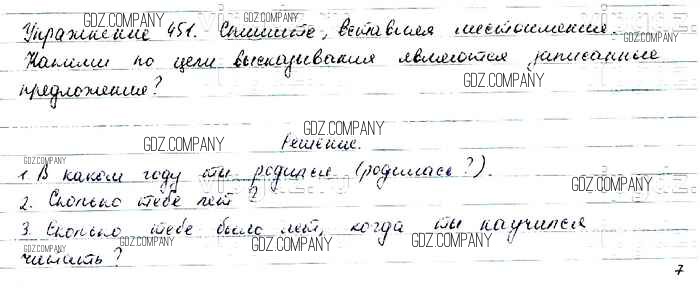 Упражнение 451. Спишите, вставляя местоимения.
Какими по цели высказывания являются записанные
предложения?
Решение.
1. В каком году ты родился (родилась?).
2. Сколько тебе лет?
3. Сколько тебе было лет, когда ты научился
читать?
7
GDZ.COMPANY
GDZ.COMPANY
GDZ.COMPANY
GDZ.COMPANY
GDZ.COMPANY
GDZ.COMPANY
GDZ.COMPANY
GDZ.COMPANY
GDZ.COMPANY
GDZ.COMPANY
GDZ.COMPANY